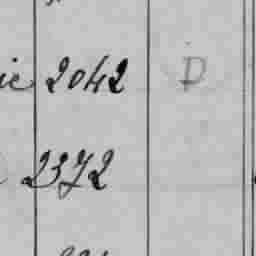 ie 2042 D
2372